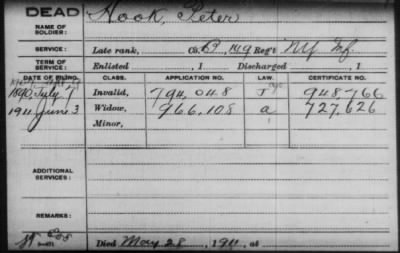 DEAD
NAME OF SOLDIER: Hook, Peter
SERVICE: Late rank, Co. B, 149 Reg't NY Inf.
TERM OF SERVICE: Enlisted , 1 Discharged , 1
DATE OF FILING. CLASS. APPLICATION NO. LAW. CERTIFICATE NO.
1890, July 7 Invalid, 794,048 J 948,766
1911 June 3 Widow, 966,108 a 727,626
Minor,
ADDITIONAL SERVICES:
REMARKS:
3-671 Died May 28, 1911, at